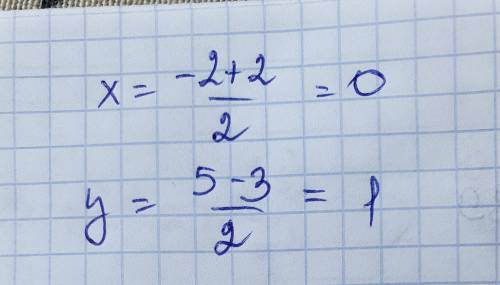 x = \frac{-2+2}{2} = 0
y = \frac{5-3}{2} = 1